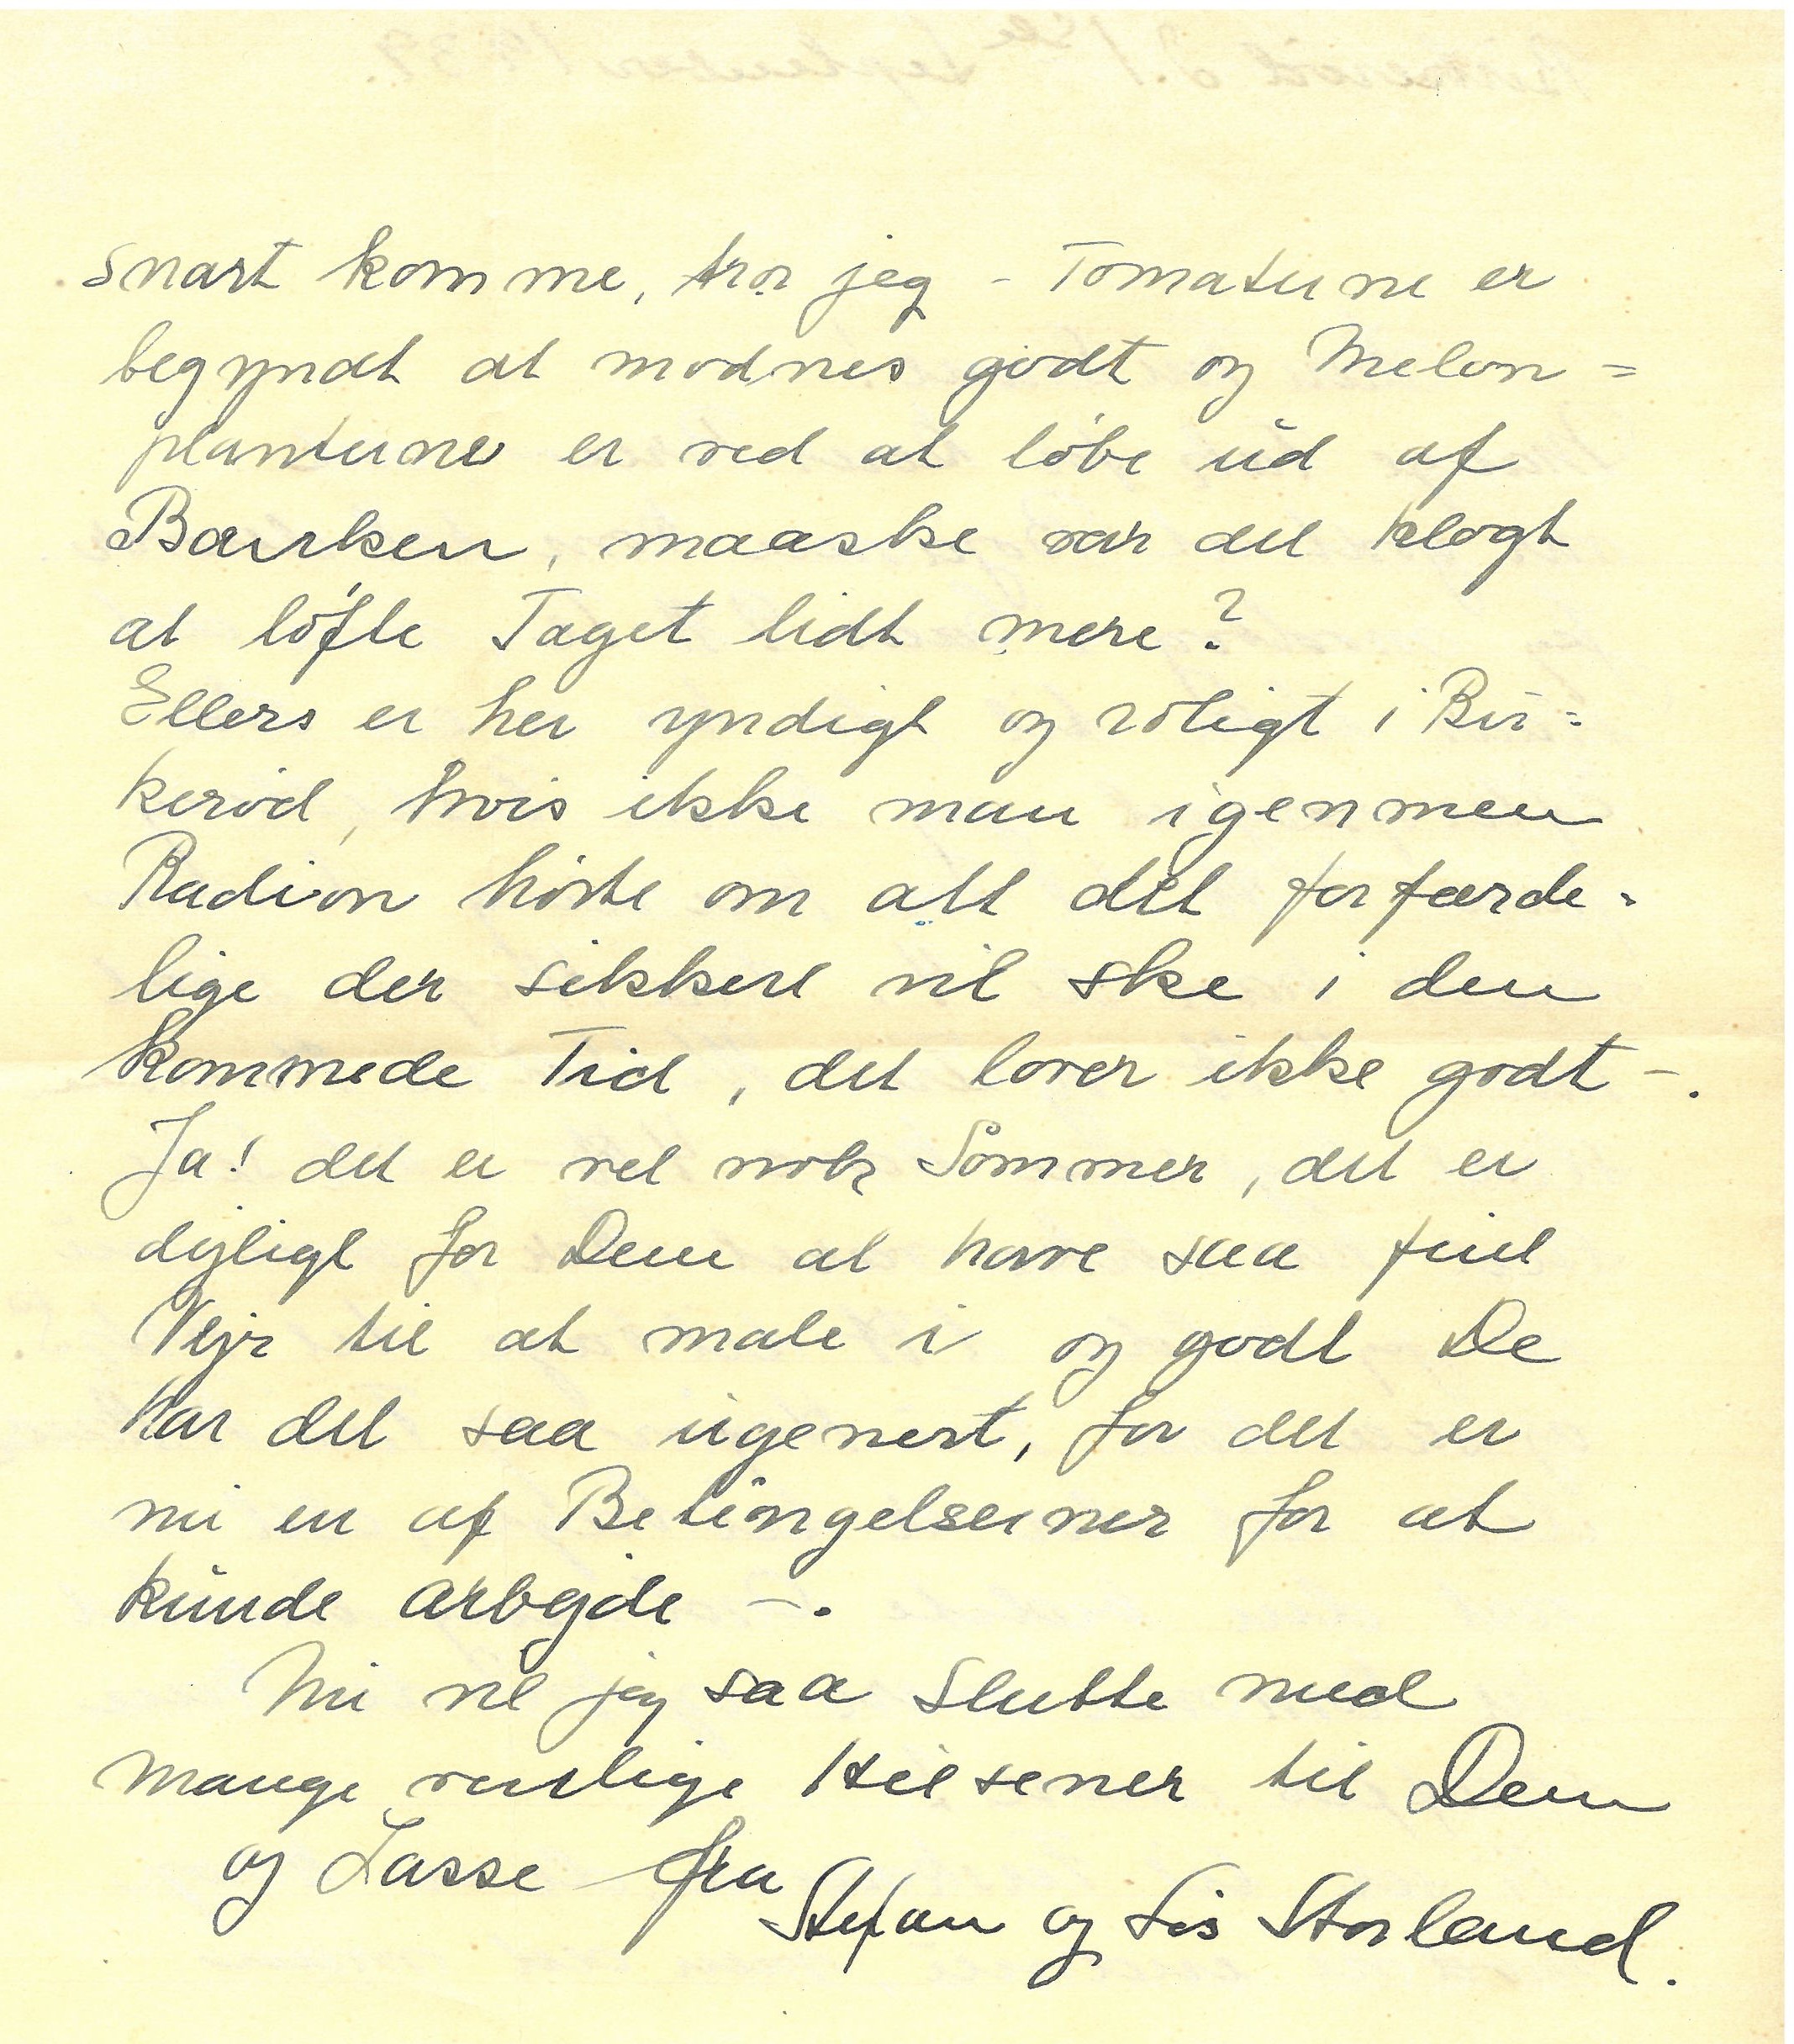 snart komme, tror jeg - Tomaterne er
begyndt at modnes godt og Melon=
planterne er ved at løbe ud af
Bænken, maaske var det klogt
at løfte Taget lidt mere?
Ellers er her yndigt og roligt i Bir=
kerød, hvis ikke man igennem
Radion hørte om alt det forfærde=
lige der sikkert vil ske i den
kommede Tid, det lover ikke godt -.
Ja! det er vel nok Sommer, det er
dejligt for Dem at have saa fint
Vejr til at male i og godt De
har det saa ugenert, for det er
nu en af Betingelserner for at
kunde arbejde -.
Nu vil jeg saa slutte med
mange venlige Hilsener til Dem
og Lasse fra
Stefan og Lis Storland.